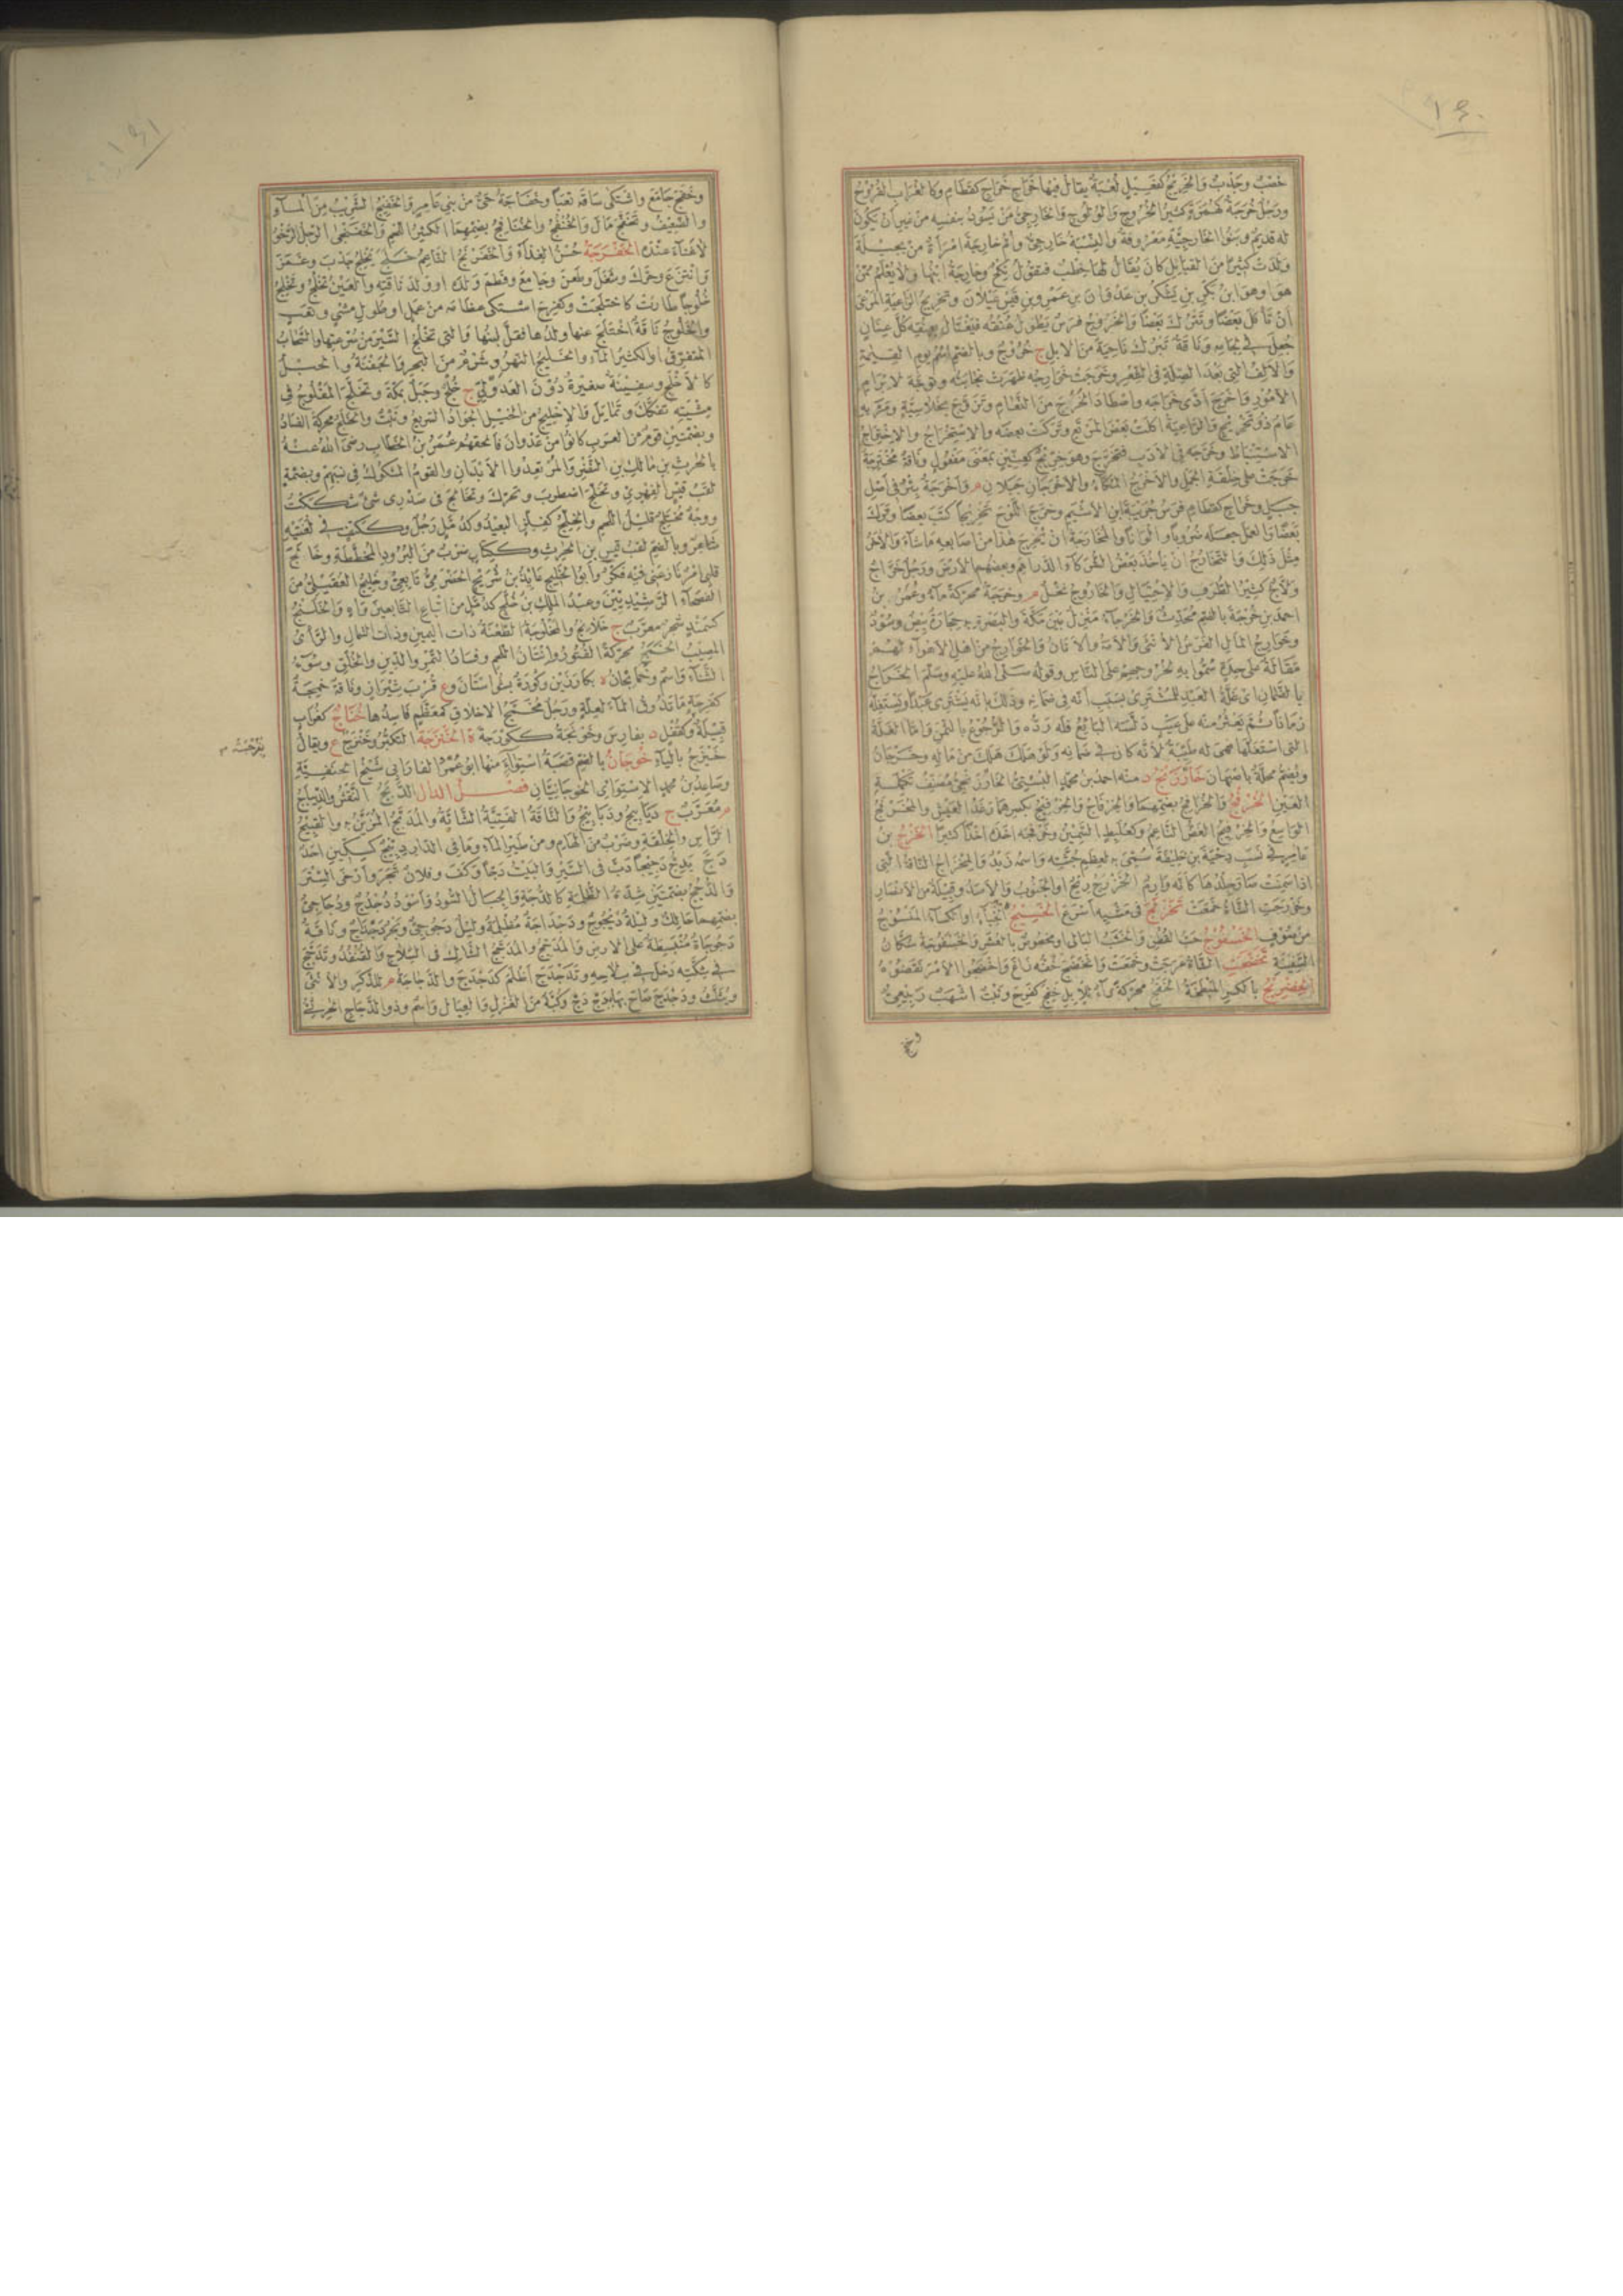 ١٤٠
خصْبٌ وجَدْبٌ والخَرِيجُ كقَتيلٍ لُعْبَةٌ يقالُ فيها خَراجِ خَراجِ كقَطامِ وكالغُرابِ القُروحُ
ورَجُلٌ خُرَجَةٌ كهُمَزَةٍ كثيرُ الخُروجِ والوُلوجِ والخارِجِيُّ مَنْ يَسودُ بنفسِه من غيرِ أن يكونَ
له قديمٌ وبنو الخارجِيَّةِ معروفةٌ والنِسْبَةُ خارِجِيٌّ وأُمُّ خارِجَةَ امرأةٌ من بجيلةَ
ولَدَتْ كثيرًا من القبائلِ كان يقالُ لها خِطْبٌ فتقولُ نِكْحٌ وخارِجَةُ ابنُها ولا يُعْلَمُ ممَّنْ
هو أو هو ابنُ بَكْرِ بنِ يَشْكُرَ بنِ عَدْوانَ بنِ عَمْرِو بنِ قيسِ عَيْلانَ وتخريجُ الراعِيَةِ المَرْعَى
أن تأكلَ بعضًا وتترُكَ بعضًا والخَروجُ فرسٌ يطولُ عُنُقُه فيَغْتالُ بعُنُقِه كلَّ عِنانٍ
جُعِلَ في لجامِه وناقةٌ تَبْرُكُ ناحِيَةً من الإبلِ ج خُرُجٌ وبالضمِّ اسمُ يومِ القيمةِ
والألِفُ التي بعدَ الصِّلَةِ في الشعرِ وخرجتْ خَوارِجُه ظهرتْ نجابتُه وتوجَّهَ لإبرامِ
الأمورِ وأخرجَ أدَّى خَراجَه واصطادَ الخُرْجَ من النَّعامِ وتزوَّجَ بخِلاسِيَّةٍ ومرَّ به
عامٌ ذو تخريجٍ والراعيةُ أكلتْ بعضَ المَرْتَعِ وتركتْ بعضَه والاستخراجُ والاختراجُ
الاستنباطُ وخَرَّجَه في الأدبِ فتخرَّجَ وهو خِرِّيجٌ كعِنِّينٍ بمعنى مفعولٍ وناقةٌ مُخْتَرِجَةٌ
خرجتْ على خِلْقَةِ الجملِ والأخرجُ المُكّاءُ والأخرجانِ جبلانِ م وأخرجةُ بئرٌ في أصلِ
جبلٍ وخَراجِ كقطامِ فرسُ جُرَيْبَةَ بنِ الأشيمِ وخرَّجَ اللوحَ تخريجًا كتبَ بعضًا وتركَ
بعضًا والعملَ جعلَه ضُروبًا وألوانًا والمُخارَجَةُ أن يُخْرِجَ هذا من أصابعِه ما شاءَ والآخرُ
مثلَ ذلكَ والتخارُجُ أن يأخذَ بعضُ الشركاءِ الدارَ وبعضُهم الأرضَ ورجلٌ خَرّاجٌ
ولّاجٌ كثيرُ الظَّرْفِ والاحتيالِ والخاروجُ نخلٌ م وخَرَجَةُ محرّكةً ماءٌ وعُمَرُ بنُ
أحمدَ بنِ خُرْجَةَ بالضمِّ محدِّثٌ والخَرْجاءُ منزلٌ بين مكةَ والبصرةِ به حجارةٌ بيضٌ وسودٌ
وخوارجُ المالِ الفرسُ الأنثى والأمَةُ والأتانُ والخوارجُ من أهلِ الأهواءِ لهم
مقالةٌ على حِدَةٍ سُمُّوا به لخروجِهم على الناسِ وقولُه صلى الله عليه وسلم الخراجُ
بالضمانِ أي غَلَّةُ العبدِ للمشتري بسببِ أنه في ضمانِه وذلكَ بأنه يشتري عبدًا ويستغلُّه
زمانًا ثم يعثرُ منه على عيبٍ دلَّسَه البائعُ فله ردُّه والرجوعُ بالثمنِ وأما الغلّةُ
التي استغلَّها فهي له طيِّبةٌ لأنه كان في ضمانِه ولو هلكَ هلكَ من مالِه وخَرْجانُ
ويُضَمُّ محلّةٌ بأصبهانَ خارْزَنْجُ د منه أحمدُ بنُ محمدٍ البُشْتِيُّ الخارزنجيُّ مصنِّفُ تكملةِ
العينِ الخُرْفُجُ والخُرافِجُ بضمِّهما والخِرْفاجُ والخِرْفيجُ بكسرِهما رغَدُ العيشِ والمُخَرْفَجُ
الواسعُ والخِرْفيجُ الغَضُّ الناعمُ وكعُلَبِطٍ السمينُ وخَرْفَجَه أخذَه أخذًا كثيرًا الخَزْجُ بنُ
عامرٍ في نسبِ دِحْيَةَ بنِ خليفةَ سُمِّيَ به لعِظَمِ جُثَّتِه واسمُه زيدٌ والمِخْزاجُ الناقةُ التي
إذا سَمِنَتْ صارَ جلدُها كأنه وارمٌ الخَزْرَجُ ريحٌ أو الجنوبُ والأسدُ وقبيلةٌ من الأنصارِ
وخَزْرَجَتِ الشاةُ خَمَعَتْ تَخَزْلَجَ في مشيِه أسرعَ الخَسيجُ الخِباءُ أو الكساءُ المنسوجُ
من صوفٍ الخَيْسَفوجُ حبُّ القطنِ والخشبُ البالي أو مخصوصٌ بالعُشَرِ والخَيْسَفوجَةُ سُكّانُ
السفينةِ تَخَضَّجَتِ الشاةُ عَرِجَتْ وخَمَعَتْ وانخضجَ خُفُّه زاغَ واخضجوا الأمرَ نقضوه
الخِضْريجُ بالكسرِ المَبْطَخَةُ الخَفَجُ محركةً داءٌ للإبلِ خفِجَ كفرِحَ ونبتٌ أشهبُ ربيعيٌّ
وخفج
١٤١
وخَفَجَ جامعَ واشتكى ساقَه تعبًا وخَفاجَةُ حيٌّ من بني عامرٍ والخَفيجُ الشَّريبُ من الماءِ
والضعيفُ وتخفَّجَ مالَ والخُنْفُجُ والخُنافِجُ بضمِّهما الكثيرُ اللحمِ والخَفَنْجى الرجلُ الرخوُ
لا غَناءَ عنده الخَفْرَجَةُ حُسْنُ الغِذاءِ والخَفَرْنَجُ الناعمُ خَلَجَ يَخْلِجُ جذبَ وغمزَ
وانتزعَ وحرّكَ وشغلَ وطعنَ وجامعَ وفطمَ ولدَه أو ولدَ ناقتِه والعينُ تَخْلِجُ وتَخْلُجُ
خُلوجًا طارتْ كاختلجتْ وكفرِحَ اشتكى عظامَه من عملٍ أو طولِ مشيٍ وتعبٍ
والخَلوجُ ناقةٌ اختُلِجَ عنها ولدُها فقلَّ لبنُها والتي تخلِجُ السيرَ من سرعتِها والسحابُ
المتفرّقُ أو الكثيرُ الماءِ والخليجُ النهرُ وشَرْمٌ من البحرِ والجفنةُ والحبلُ
كالأخلجِ وسفينةٌ صغيرةٌ دونَ العَدَوْلِيِّ ج خُلُجٌ وجبلٌ بمكةَ وتخلَّجَ المفلوجُ في
مشيتِه تفكّكَ وتمايلَ والإخليجُ من الخيلِ الجوادُ السريعُ ونبتٌ والخَلَجُ محركةً الفسادُ
وبضمّتينِ قومٌ من العربِ كانوا من عدوانَ فألحقهم عمرُ بنُ الخطابِ رضي الله عنه
بالحرثِ بنِ مالكِ بنِ النضرِ والمُرْتَعِدو الأبدانِ والقومُ المشكوكُ في نسبِهم وبضمّةٍ
لقبُ قيسٍ الفهريِّ وتخلّجَ اضطربَ وتحرّكَ وتخالجَ في صدري شيءٌ شككتُ
ووجهٌ مختلجٌ قليلُ اللحمِ والخِلِجُّ كفِلِزٍّ البعيدُ وكدُمَّلٍ رجلٌ وككتفٍ في لغتَيْه
شاعرٌ وبالضمِّ لقبُ قيسِ بنِ الحرثِ وككتابٍ ضربٌ من البرودِ المخطّطةِ وخالجَ
قلبي أمرٌ نازعني فيه فكرٌ وأبو الخليجِ عائذُ بنُ شُرَيْحٍ الحضرميُّ تابعيٌّ وخليجٌ العُقَيْليُّ من
الفصحاءِ الرشيديينَ وعبدُ الملكِ بنُ خُلَّجٍ كدمّلٍ من أتباعِ التابعينَ واهٍ والخَلَنْجُ
كسمندٍ شجرٌ معرّبٌ ج خلانجُ والمخلوجةُ الطعنةُ ذاتُ اليمينِ وذاتُ الشمالِ والرأيُ
المصيبُ الخَمَجُ محركةً الفتورُ وإنتانُ اللحمِ وفسادُ التمرِ والدينِ والخُلُقِ وسوءُ
الثناءِ واسمٌ وخُمايِجانُ د بكارزينَ وكورةٌ بخُواستانَ وع قربَ شيرازَ وناقةٌ خَمِجَةٌ
كفرحةٍ ما تذوقُ الماءَ لعلّةٍ ورجلٌ مُخَمَّجُ الأخلاقِ كمعظّمٍ فاسدُها خُناجٌ كغرابٍ
قبيلةٌ وكقُفْلٍ د بفارسَ وخُونَجَةُ ككورجةَ ة الخَنْزَجَةُ التكبّرُ وخَنْزَجٌ ع ويقالُ
خَيْزَجٌ بالياءِ خُوجانُ بالضمِّ قصبةُ أُسْتُواءَ منها أبو عمرٍو الفاراتيُّ شيخُ الحنفيّةِ
وصاعدُ بنُ محمدٍ الأستوائيُّ الخوجانيّانِ فصل الدال الدَّبْجُ النقشُ والديباجُ
م معرّبٌ ج ديابيجُ ودبابيجُ والناقةُ الفتيّةُ الشابّةُ والمُدَبَّجُ المزيَّنُ به والقبيحُ
الرأسِ والخلقةِ وضربٌ من الهامِ ومن طيرِ الماءِ وما في الدارِ دِبّيجٌ كسكّينٍ أحدٌ
دَجَّ يَدِجُّ دجيجًا دبَّ في السيرِ والبيتُ دجًّا وكفَ وفلانٌ تجرَ وأرخى السترَ
والدُّجُجُ بضمّتينِ شدّةُ الظلمةِ كالدُّجّةِ والجبالُ السودُ وأسودُ دُجْدُجٌ ودُجاجيٌّ
بضمّهما حالكٌ وليلةٌ ديجوجٌ ودجداجةٌ مظلمةٌ وليلٌ دَجوجيٌّ وبحرٌ دجداجٌ وناقةٌ
دَجوجاةٌ منبسطةٌ على الأرضِ والمُدَجِّجُ والمُدَجَّجُ الشاكُّ في السلاحِ والقنفذُ وتدجَّجَ
في شِكَّتِه دخلَ في سلاحِه وتدجدجَ أظلمَ كدجدجَ والدجاجةُ م للذكرِ والأنثى
ويثلَّثُ ودجدجَ صاحَ بها بدِجْ دِجْ وكُبّةٌ من الغزلِ والعيالُ واسمٌ وذو الدجاجِ الحرثيُّ